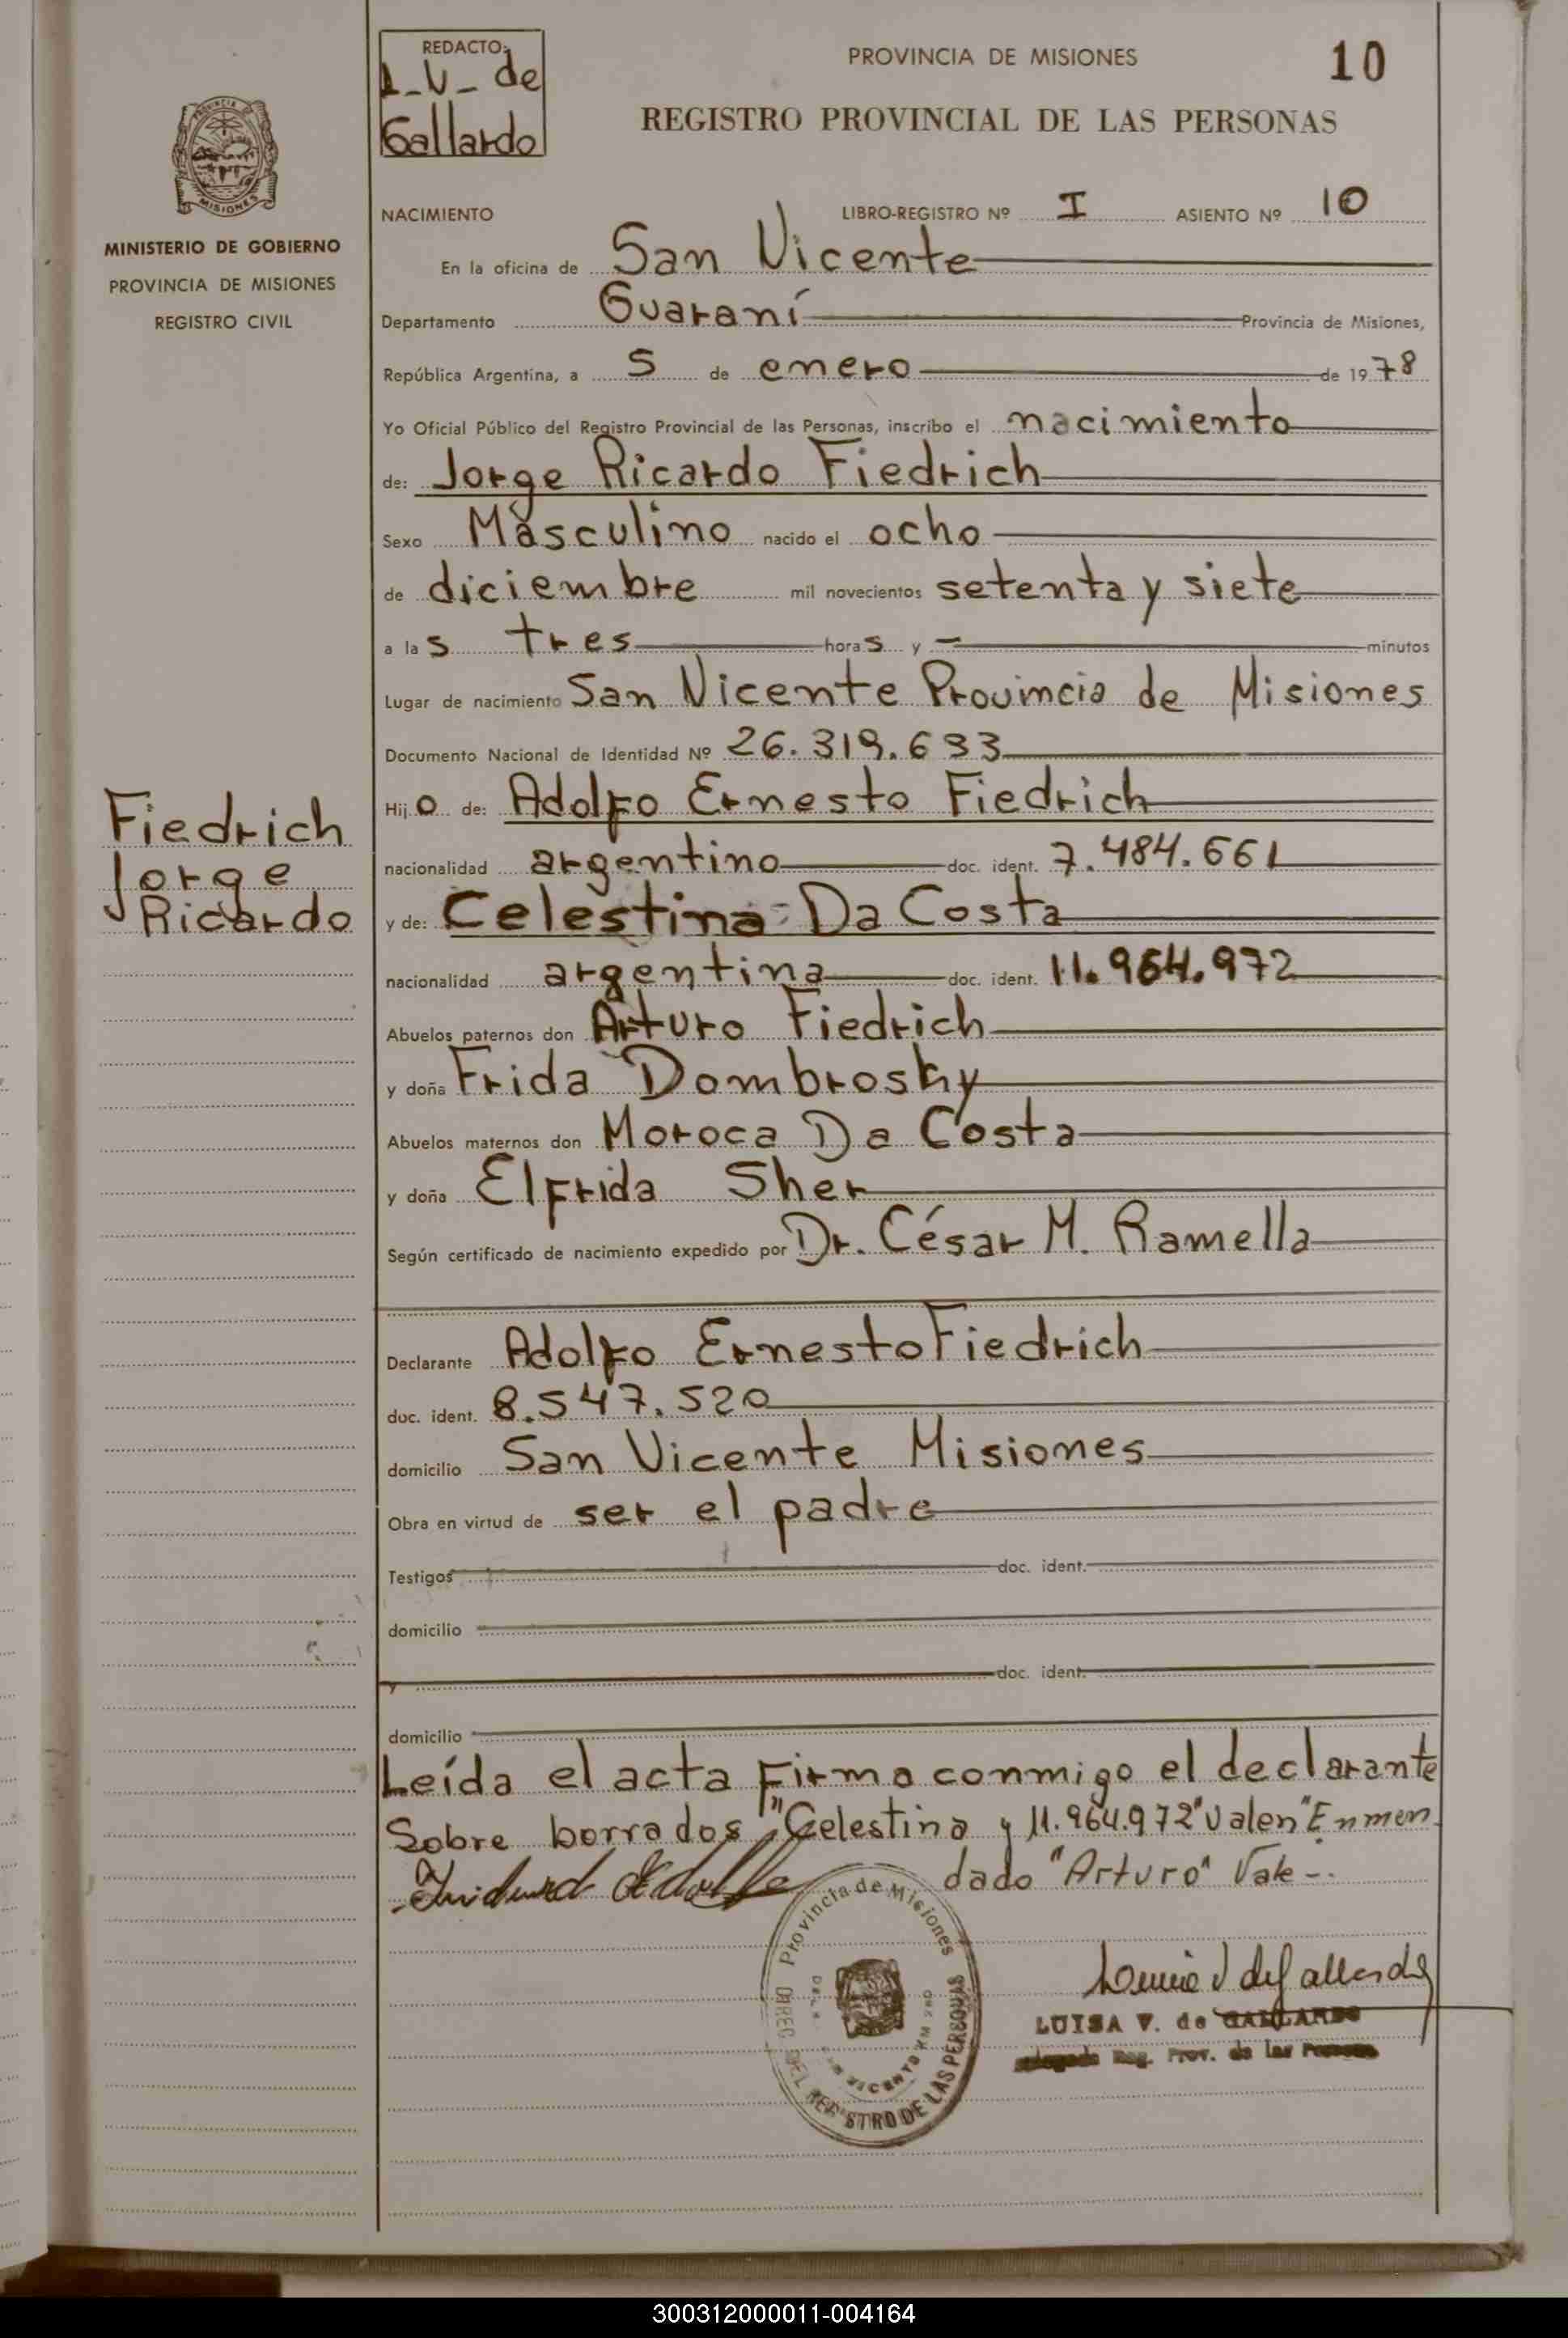 REDACTO:
L_V_ de
Gallardo
PROVINCIA DE MISIONES
10
REGISTRO PROVINCIAL DE LAS PERSONAS
MISIONES
MINISTERIO DE GOBIERNO
PROVINCIA DE MISIONES
REGISTRO CIVIL
NACIMIENTO LIBRO-REGISTRO Nº I ASIENTO Nº 10
En la oficina de San Vicente
Departamento Guaraní Provincia de Misiones,
República Argentina, a 5 de enero de 1978
Yo Oficial Público del Registro Provincial de las Personas, inscribo el nacimiento
de: Jorge Ricardo Fiedrich
Sexo Masculino nacido el ocho
de diciembre mil novecientos setenta y siete
a las tres horas y — minutos
Lugar de nacimiento San Vicente Provincia de Misiones
Documento Nacional de Identidad Nº 26.319.633
Fiedrich
Jorge
Ricardo
Hijo de: Adolfo Ernesto Fiedrich
nacionalidad argentino doc. ident. 7.484.661
y de: Celestina Da Costa
nacionalidad argentina doc. ident. 11.964.972
Abuelos paternos don Arturo Fiedrich
y doña Frida Dombrosky
Abuelos maternos don Moroca Da Costa
y doña Elfrida Sher
Según certificado de nacimiento expedido por Dr. César M. Ramella
Declarante Adolfo Ernesto Fiedrich
doc. ident. 8.547.520
domicilio San Vicente Misiones
Obra en virtud de ser el padre
Testigos doc. ident.
domicilio
y doc. ident.
domicilio
Leída el acta firma conmigo el declarante
Sobre borrados "Celestina y 11.964.972" valen "Enmen
dado "Arturo" Vale -.
Provincia de Misiones
DIREC. DEL REGISTRO DE LAS PERSONAS
LUISA V. de GALLARDO
Delegada Reg. Prov. de las Personas
300312000011-004164